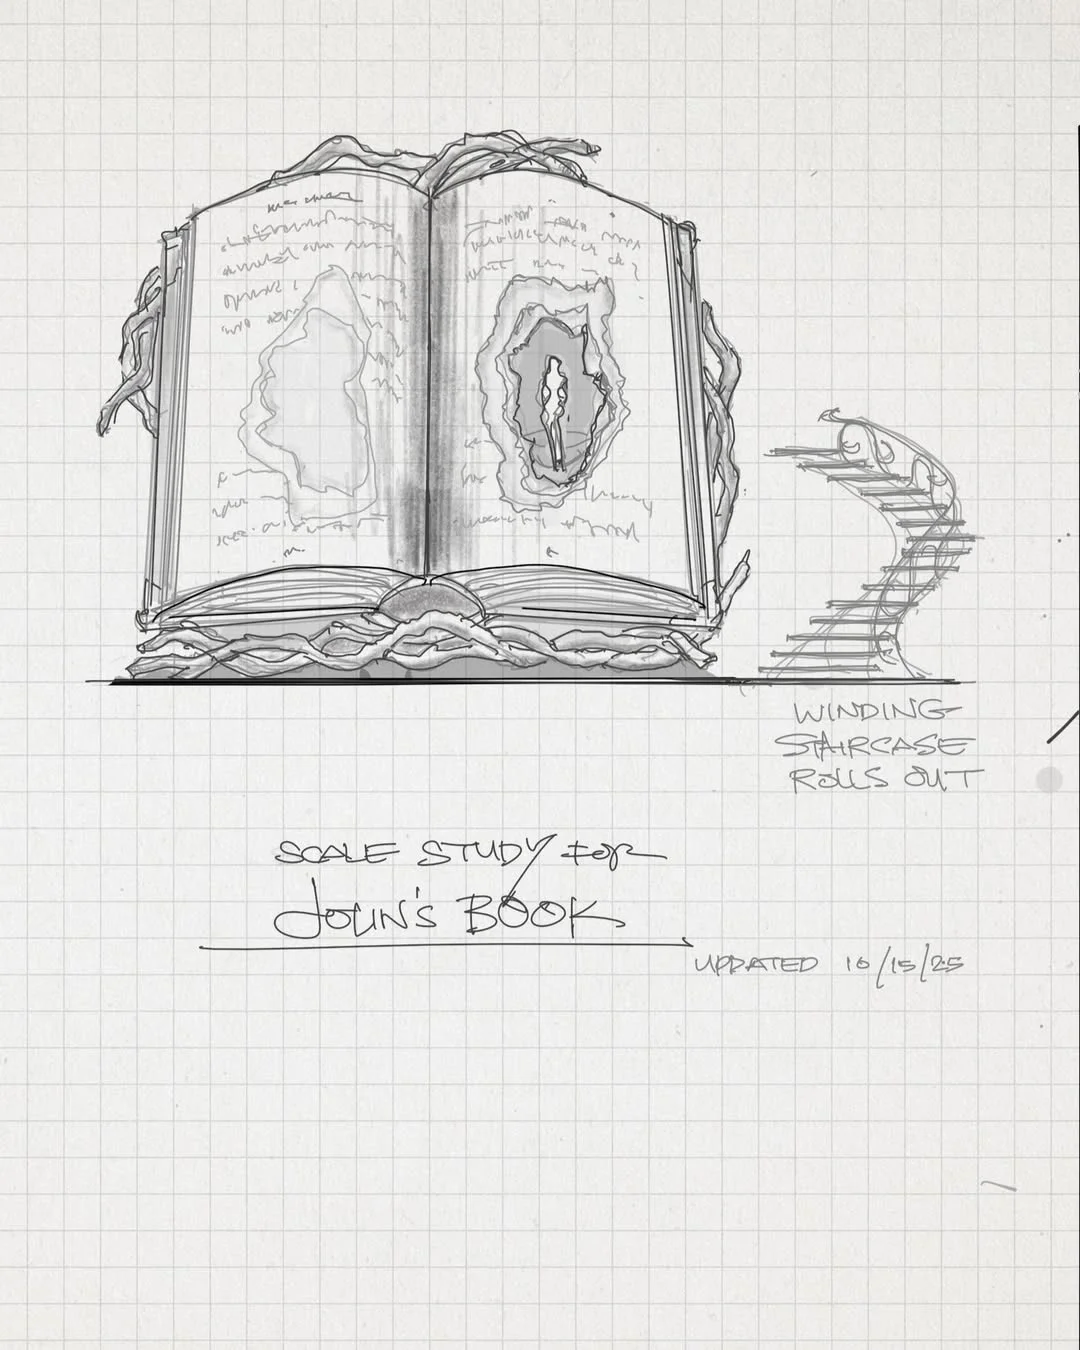 WINDING
STAIRCASE
ROLLS OUT
SCALE STUDY FOR
JOHN'S BOOK
UPDATED 10/15/25